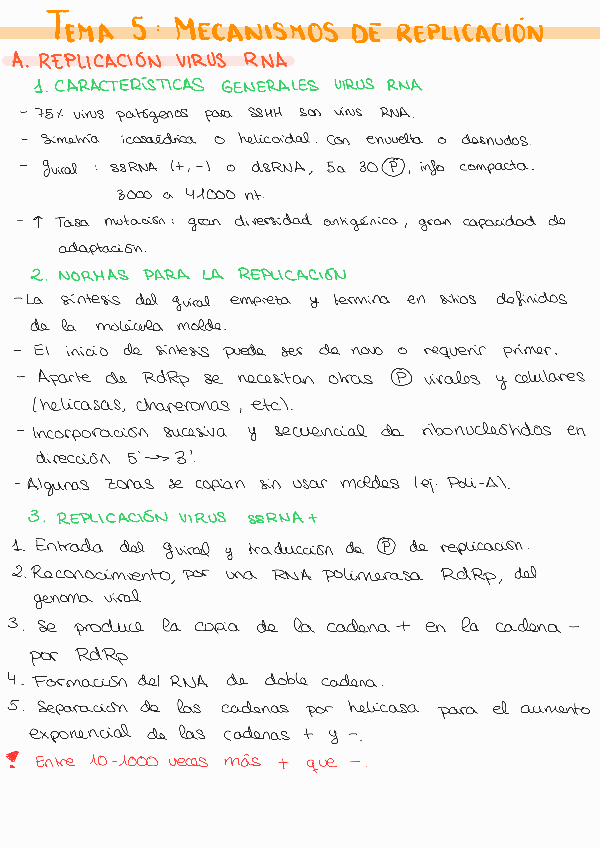 TEMA 5: MECANISMOS DE REPLICACIÓN
A. REPLICACIÓN VIRUS RNA
1. CARACTERÍSTICAS GENERALES VIRUS RNA
- 75% virus patógenos para SSHH son virus RNA.
- Simetría icosaédrica o helicoidal. Con envuelta o desnudos.
- gviral : ssRNA (+, -) o dsRNA, 5a 30 Ⓟ, info compacta.
3000 a 41000 nt.
- ↑ Tasa mutación: gran diversidad antigénica, gran capacidad de
adaptación.
2. NORMAS PARA LA REPLICACIÓN
- La síntesis del gviral empieza y termina en sitios definidos
de la molécula molde.
- El inicio de síntesis puede ser de novo o requerir primer.
- Aparte de RdRp se necesitan otras Ⓟ virales y celulares
(helicasas, chaperonas, etc).
- Incorporación sucesiva y secuencial de ribonucleótidos en
dirección 5' → 3'.
- Algunas zonas se copian sin usar moldes (ej. Poli-A).
3. REPLICACIÓN VIRUS ssRNA+
1. Entrada del gviral y traducción de Ⓟ de replicación.
2. Reconocimiento, por una RNA polimerasa RdRp, del
genoma viral
3. Se produce la copia de la cadena + en la cadena -
por RdRp
4. Formación del RNA de doble cadena.
5. Separación de las cadenas por helicasa para el aumento
exponencial de las cadenas + y -.
! Entre 10-1000 veces más + que -.